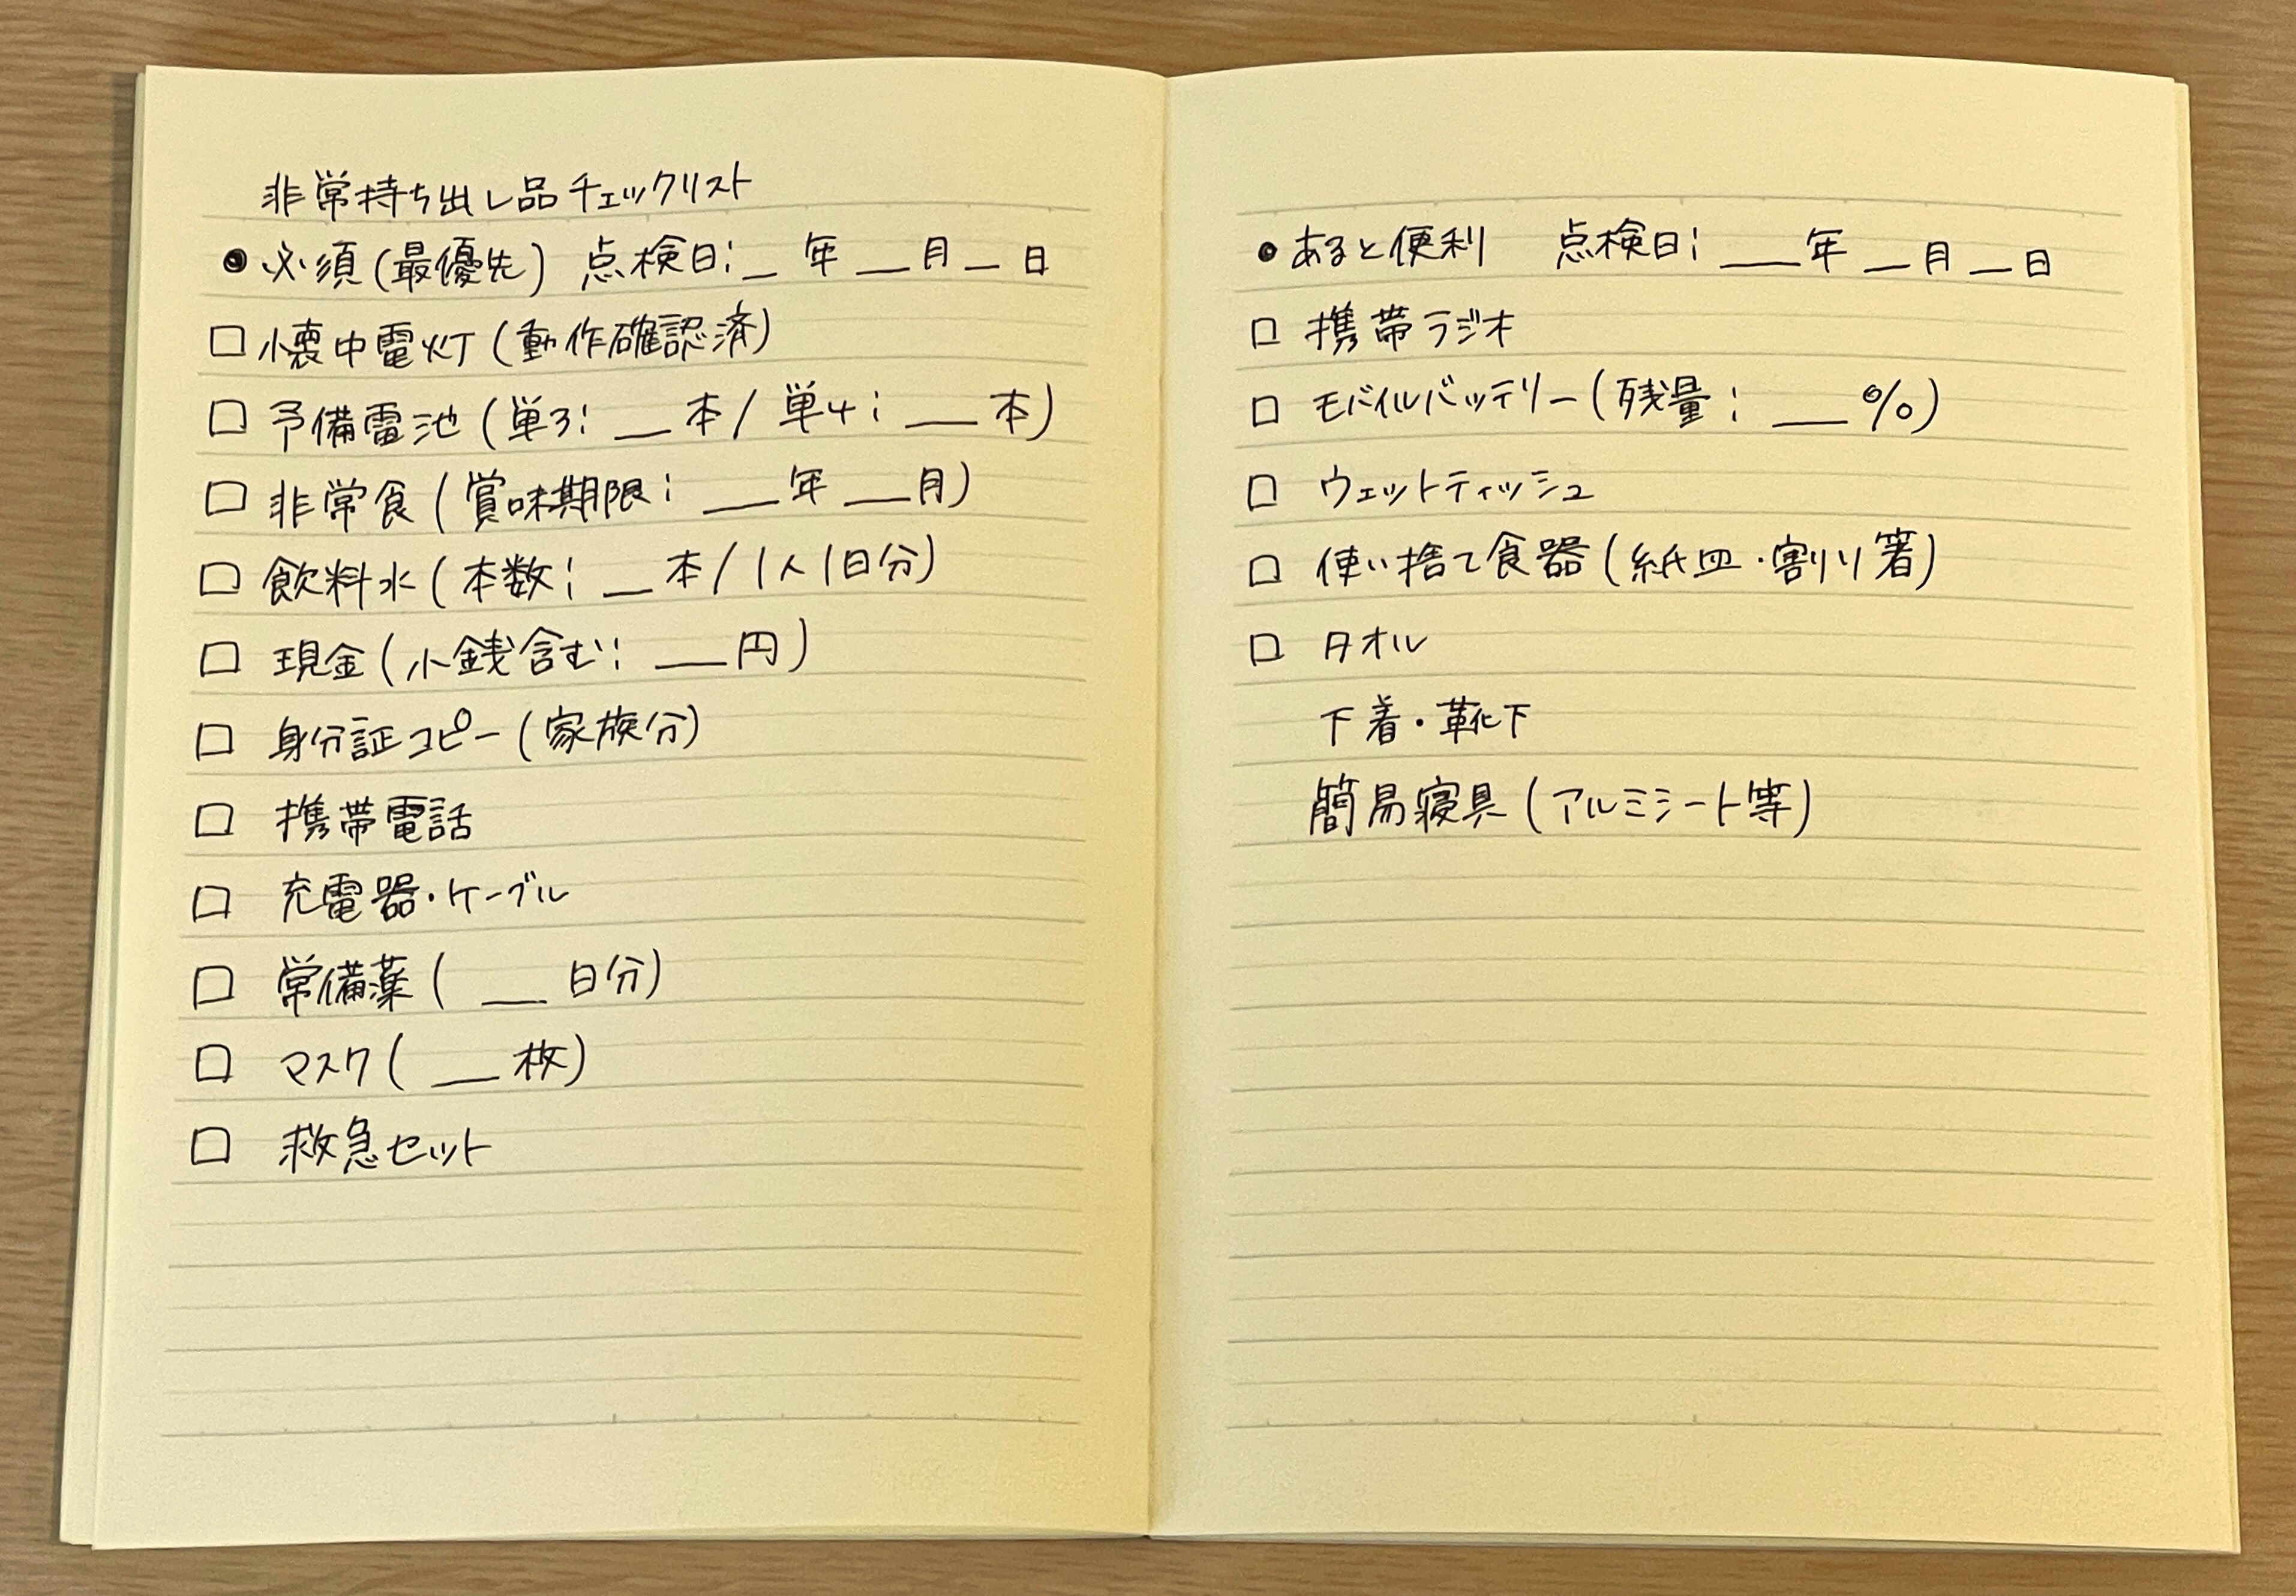 非常持ち出し品チェックリスト
●必須(最優先) 点検日:_年__月_日
□懐中電灯(動作確認済)
□予備電池(単3:__本/単4:__本)
□非常食(賞味期限:__年__月)
□飲料水(本数:__本/1人1日分)
□現金(小銭含む:__円)
□身分証コピー(家族分)
□携帯電話
□充電器・ケーブル
□常備薬(__日分)
□マスク(__枚)
□救急セット
●あると便利 点検日:__年__月__日
□携帯ラジオ
□モバイルバッテリー(残量:__%)
□ウェットティッシュ
□使い捨て食器(紙皿・割り箸)
□タオル
下着・靴下
簡易寝具(アルミシート等)